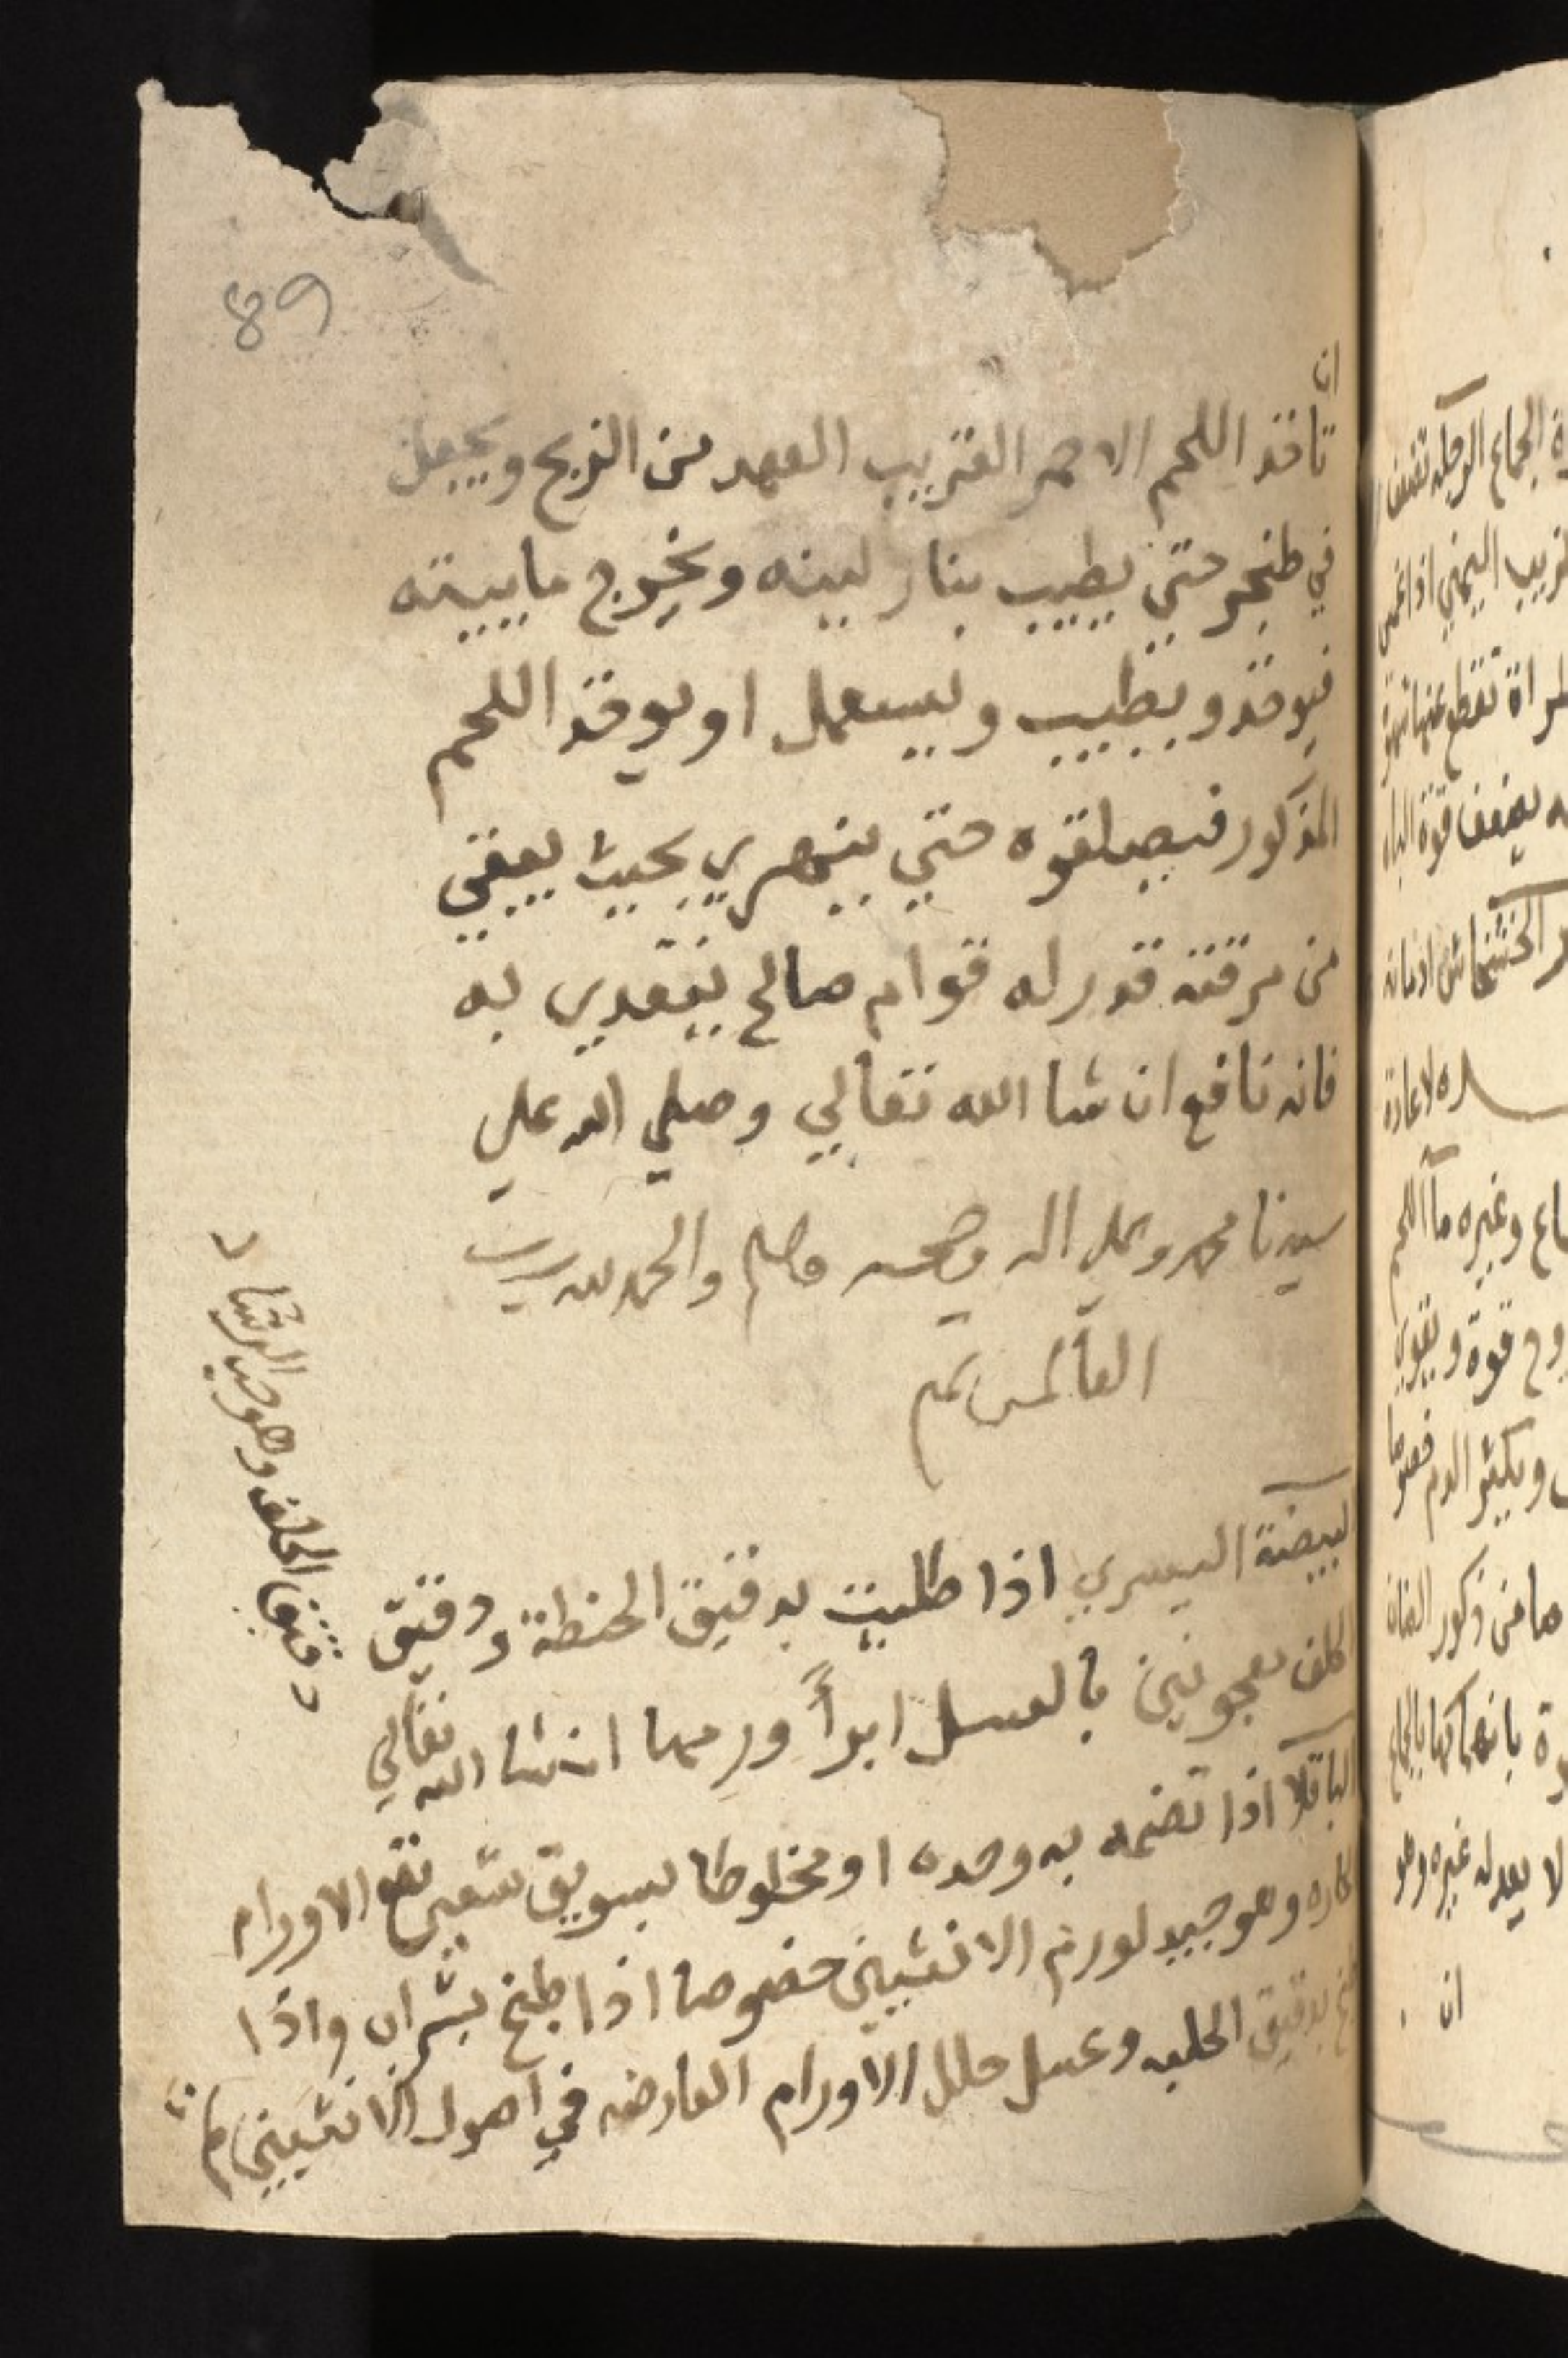 89
ان
تاخذ اللحم الاحمر القريب العهد من الذبح ويجعل
في طنجر حتي يطيب بنار لينه ويخرج مابيته
فيوخذ ويطيب ويستعمل او يوخذ اللحم
المذكور فيصلقوه حتي يتهري بحيث يبقي
من مرقته قدر له قوام صالح يتغدي به
فانه نافع ان شا الله تعالي وصلي الله علي
سيدنا محمد وعلي اله وصحبه وسلم والحمد لله رب
العالمين تم
البيضة اليسري اذا طليت بدقيق الحنطة ودقيق
الحلف معجونين بالعسل ابرأ ورمها ان شا الله تعالي
الباقلا اذا تضمد به وحده او مخلوطا بسويق شعير نفع الاورام
الحاره وهو جيد لورم الانثيين خصوصا اذا طبخ بشراب واذا
بدقيق الحلبه وعسل حلل الاورام العارضه في اصول الانثيين
دقيق الحلف وهو حب الرشاد